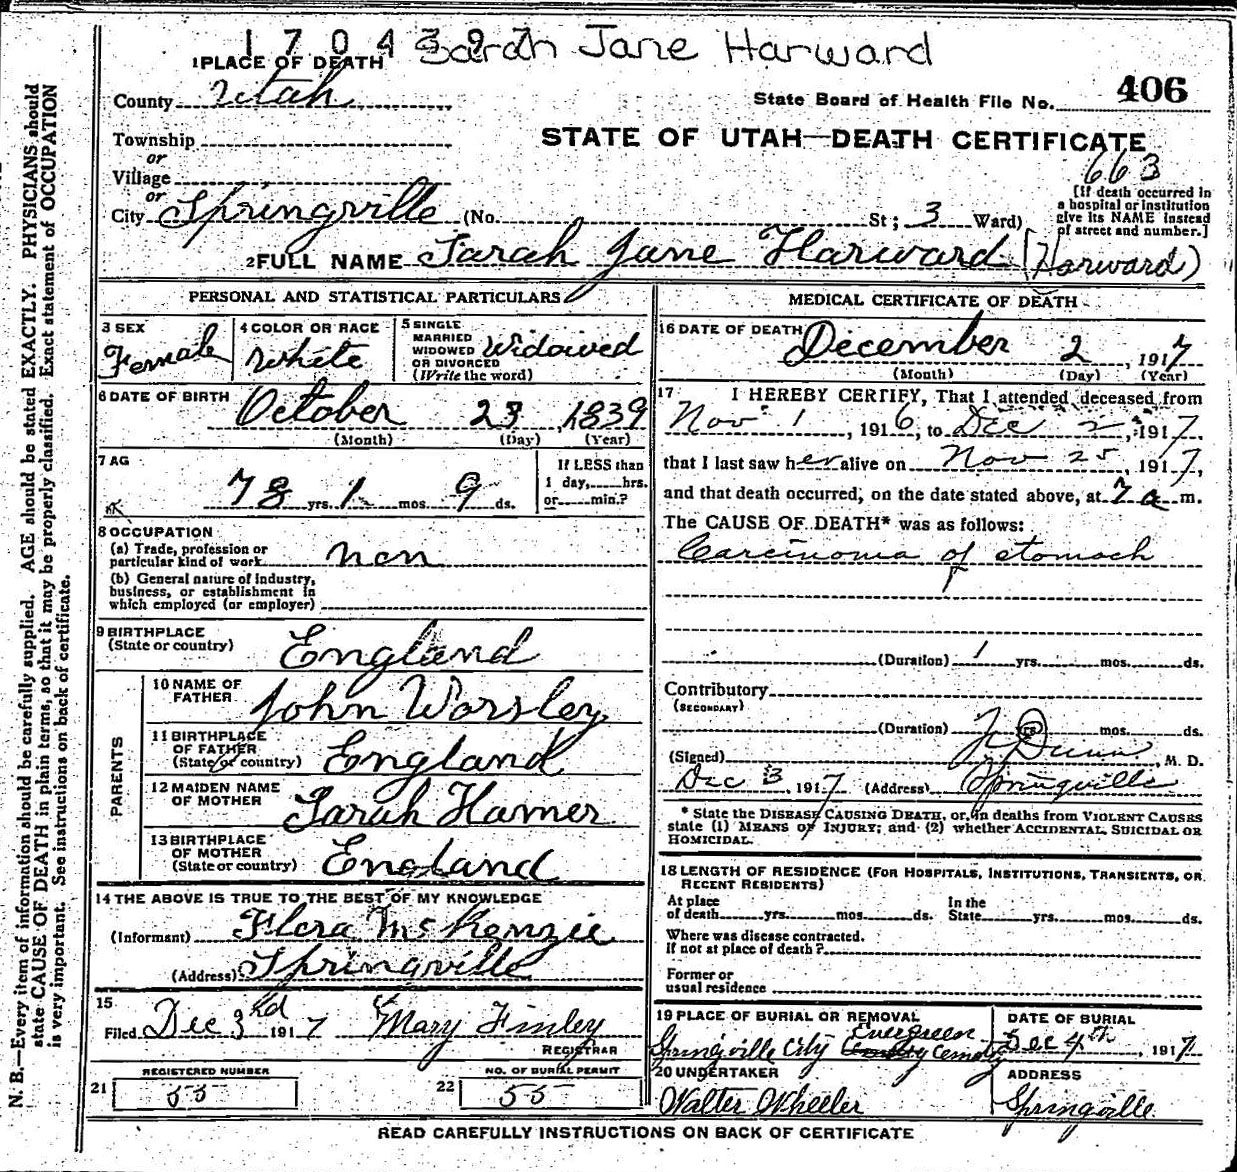 1704397 Sarah Jane Harward
1 PLACE OF DEATH
County Utah
State Board of Health File No. 406
Township
or
Village
or
City Springville (No. St; 3 Ward)
STATE OF UTAH—DEATH CERTIFICATE
663
[If death occurred in
a hospital or institution
give its NAME instead
of street and number.]
2 FULL NAME Sarah Jane Harward (Harward)
PERSONAL AND STATISTICAL PARTICULARS
3 SEX
Female
4 COLOR OR RACE
White
5 SINGLE
MARRIED
WIDOWED
OR DIVORCED
(Write the word)
Widowed
6 DATE OF BIRTH
October 23, 1839
(Month) (Day) (Year)
7 AG
78 yrs. 1 mos. 9 ds.
If LESS than
1 day, hrs.
or min.?
8 OCCUPATION
(a) Trade, profession or
particular kind of work non
(b) General nature of industry,
business, or establishment in
which employed (or employer)
9 BIRTHPLACE
(State or country) England
PARENTS
10 NAME OF
FATHER John Worsley
11 BIRTHPLACE
OF FATHER
(State or country) England
12 MAIDEN NAME
OF MOTHER Sarah Hamer
13 BIRTHPLACE
OF MOTHER
(State or country) England
14 THE ABOVE IS TRUE TO THE BEST OF MY KNOWLEDGE
(Informant) Flora McKenzie
(Address) Springville
15
Filed Dec 3rd 1917 Mary Finley
REGISTRAR
REGISTERED NUMBER
21 55
NO. OF BURIAL PERMIT
22 55
MEDICAL CERTIFICATE OF DEATH
16 DATE OF DEATH
December 2, 1917
(Month) (Day) (Year)
17 I HEREBY CERTIFY, That I attended deceased from
Nov 1, 1916, to Dec 2, 1917,
that I last saw her alive on Nov 25, 1917,
and that death occurred, on the date stated above, at 7 a m.
The CAUSE OF DEATH* was as follows:
Carcinoma of stomach
(Duration) 1 yrs. mos. ds.
Contributory
(SECONDARY)
(Duration) yrs. mos. ds.
(Signed) Dunn, M. D.
Dec 3, 1917 (Address) Springville
* State the DISEASE CAUSING DEATH, or, in deaths from VIOLENT CAUSES
state (1) MEANS OF INJURY; and (2) whether ACCIDENTAL, SUICIDAL OR
HOMICIDAL.
18 LENGTH OF RESIDENCE (FOR HOSPITALS, INSTITUTIONS, TRANSIENTS, OR
RECENT RESIDENTS)
At place
of death yrs. mos. ds.
In the
State yrs. mos. ds.
Where was disease contracted.
If not at place of death?
Former or
usual residence
19 PLACE OF BURIAL OR REMOVAL
Evergreen
Springville City Cemetery
DATE OF BURIAL
Dec 4th, 1917
20 UNDERTAKER
Walter Wheeler
ADDRESS
Springville
READ CAREFULLY INSTRUCTIONS ON BACK OF CERTIFICATE
N. B.—Every item of information should be carefully supplied. AGE should be stated EXACTLY. PHYSICIANS should
state CAUSE OF DEATH in plain terms, so that it may be properly classified. Exact statement of OCCUPATION
is very important. See instructions on back of certificate.